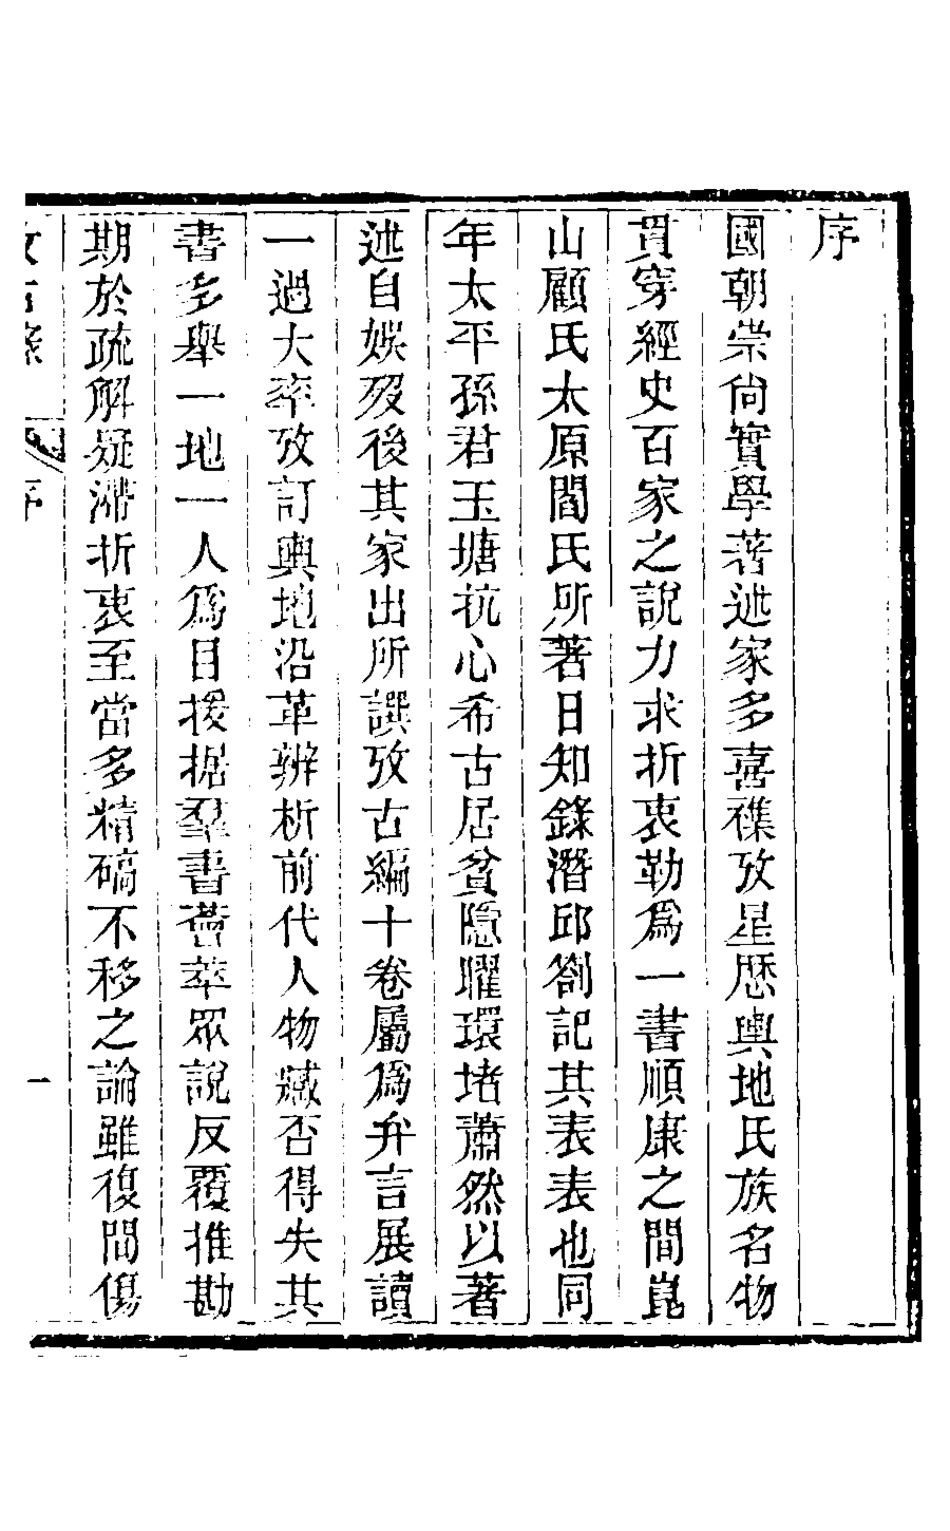 序
國朝崇尙實學著述家多喜襍攷星歴輿地氏族名物
貫穿經史百家之說力求折衷勒爲一書順康之間崑
山顧氏太原閻氏所著日知錄潛邱劄記其表表也同
年太平孫君玉塘抗心希古居貧隱曜環堵蕭然以著
述自娛歿後其家出所譔攷古編十卷屬爲弁言展讀
一過大率攷訂輿地沿革辨析前代人物臧否得失其
書多舉一地一人爲目援据羣書薈萃眾說反覆推勘
期於疏解疑滯折衷至當多精碻不移之論雖復間傷
序
一